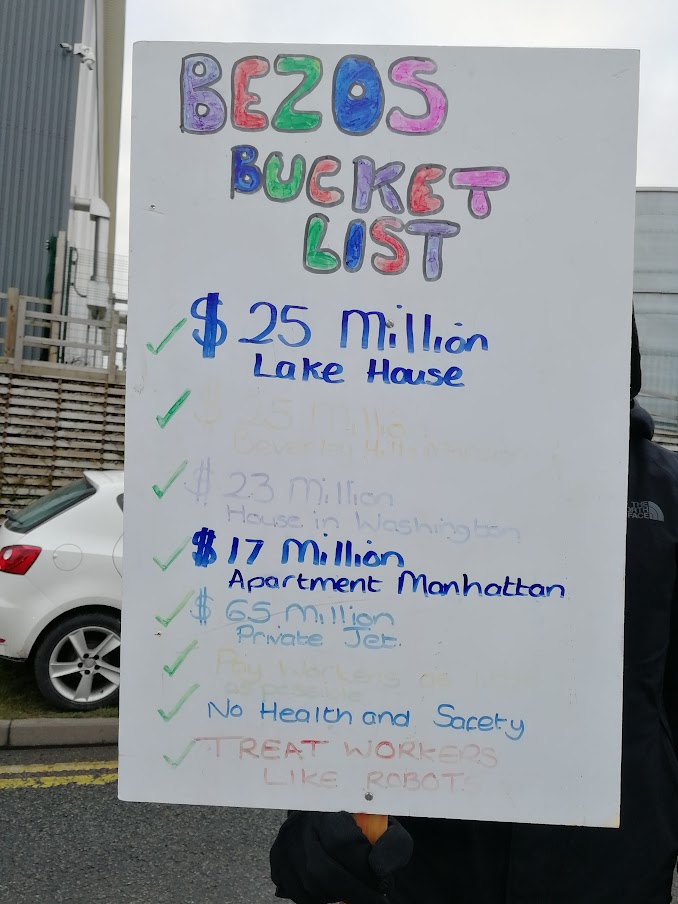 BEZOS
BUCKET
LIST
$ 25 Million
Lake House
$ 25 Million
Beverley Hills Mansion
$ 23 Million
House in Washington
$ 17 Million
Apartment Manhattan
$ 65 Million
Private Jet
Pay Workers as
as possible
No Health and Safety
TREAT WORKERS
LIKE ROBOTS
THE
NORTH
FACE